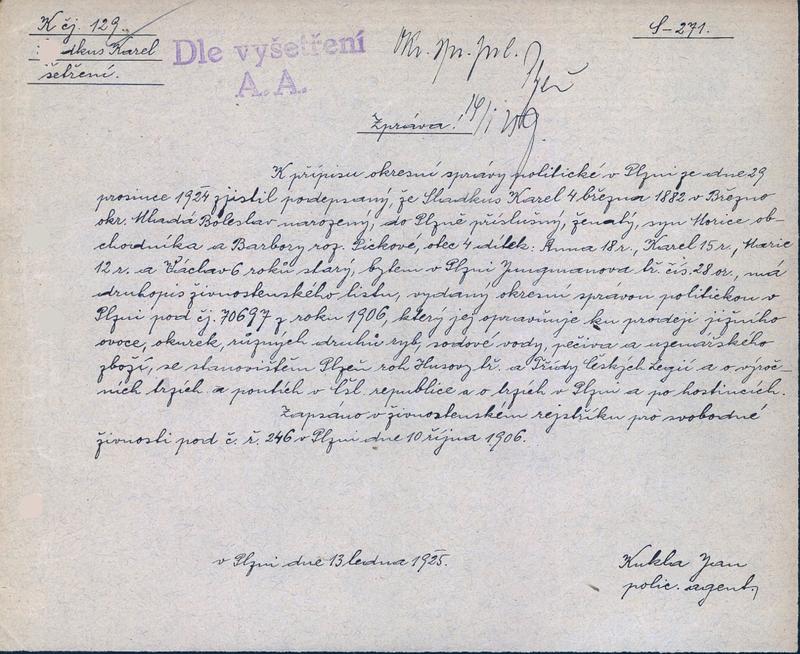 K čj. 129.
S-271.
dkus Karel
šetření.
Dle vyšetření
A.A.
Zpráva!
14/I
K přípisu okresní správy politické v Plzni ze dne 29
prosince 1924 zjistil podepsaný, že Sladkus Karel 4 března 1882 v Březno
okr. Mladá Boleslav narozený, do Plzně příslušný, ženatý, syn Morice ob-
chodníka a Barbory roz. Pickové, otec 4 dítek: Anna 18 r., Karel 15 r., Marie
12 r. a Václav 6 roků starý, bytem v Plzni Jungmanova tř. čís. 28 or., má
druhopis živnostenského listu, vydaný okresní správou politickou v
Plzni pod čj. 70697 z roku 1906, který jej opravňuje ku prodeji jižního
ovoce, okurek, různých druhů ryb, sodové vody, pečiva a uzenářského
zboží, se stanovištěm Plzeň roh Husovy tř. a Třídy Českých Legií a o výroč-
ních trzích a poutích v Čsl. republice a o trzích v Plzni a po hostincích.
Zapsáno v živnostenském rejstříku pro svobodné
živnosti pod č. ř. 246 v Plzni dne 10 října 1906.
v Plzni dne 13 ledna 1925.
Kukla Jan
polic. agent,